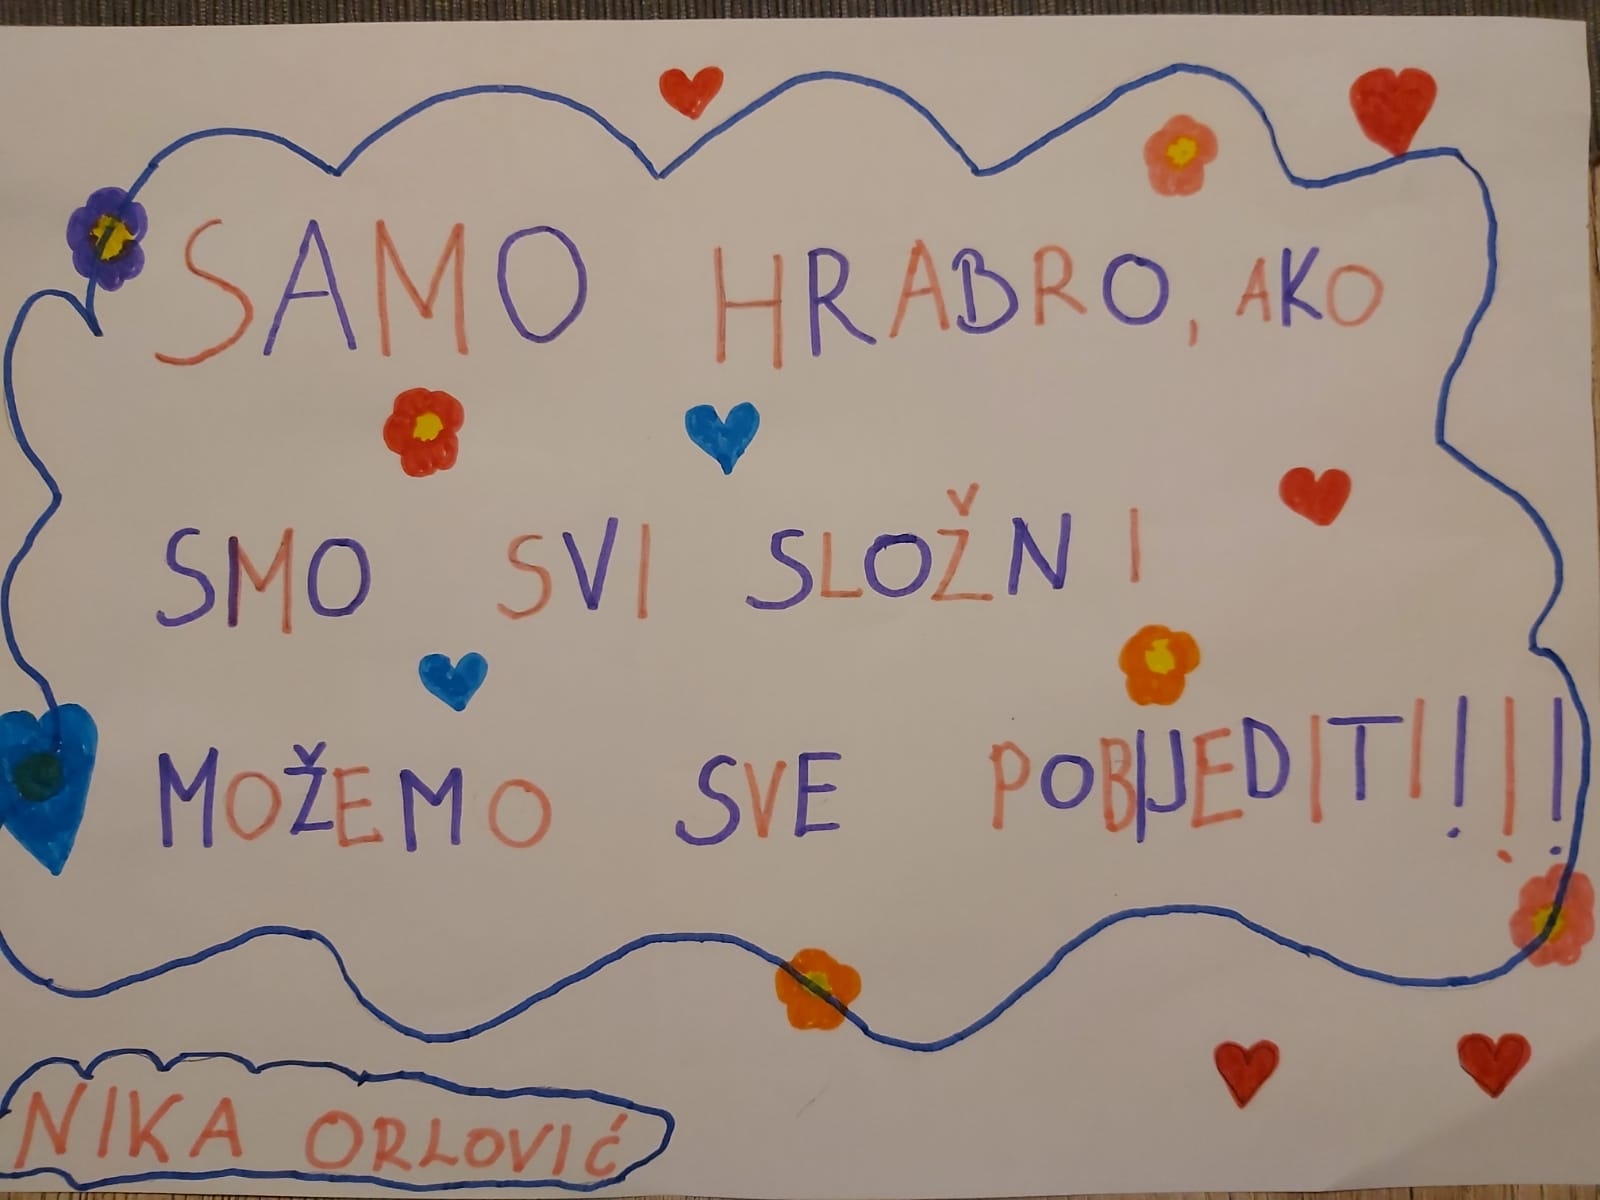 SAMO HRABRO, AKO
SMO SVI SLOŽNI
MOŽEMO SVE POBIJEDITI!!!
NIKA ORLOVIĆ